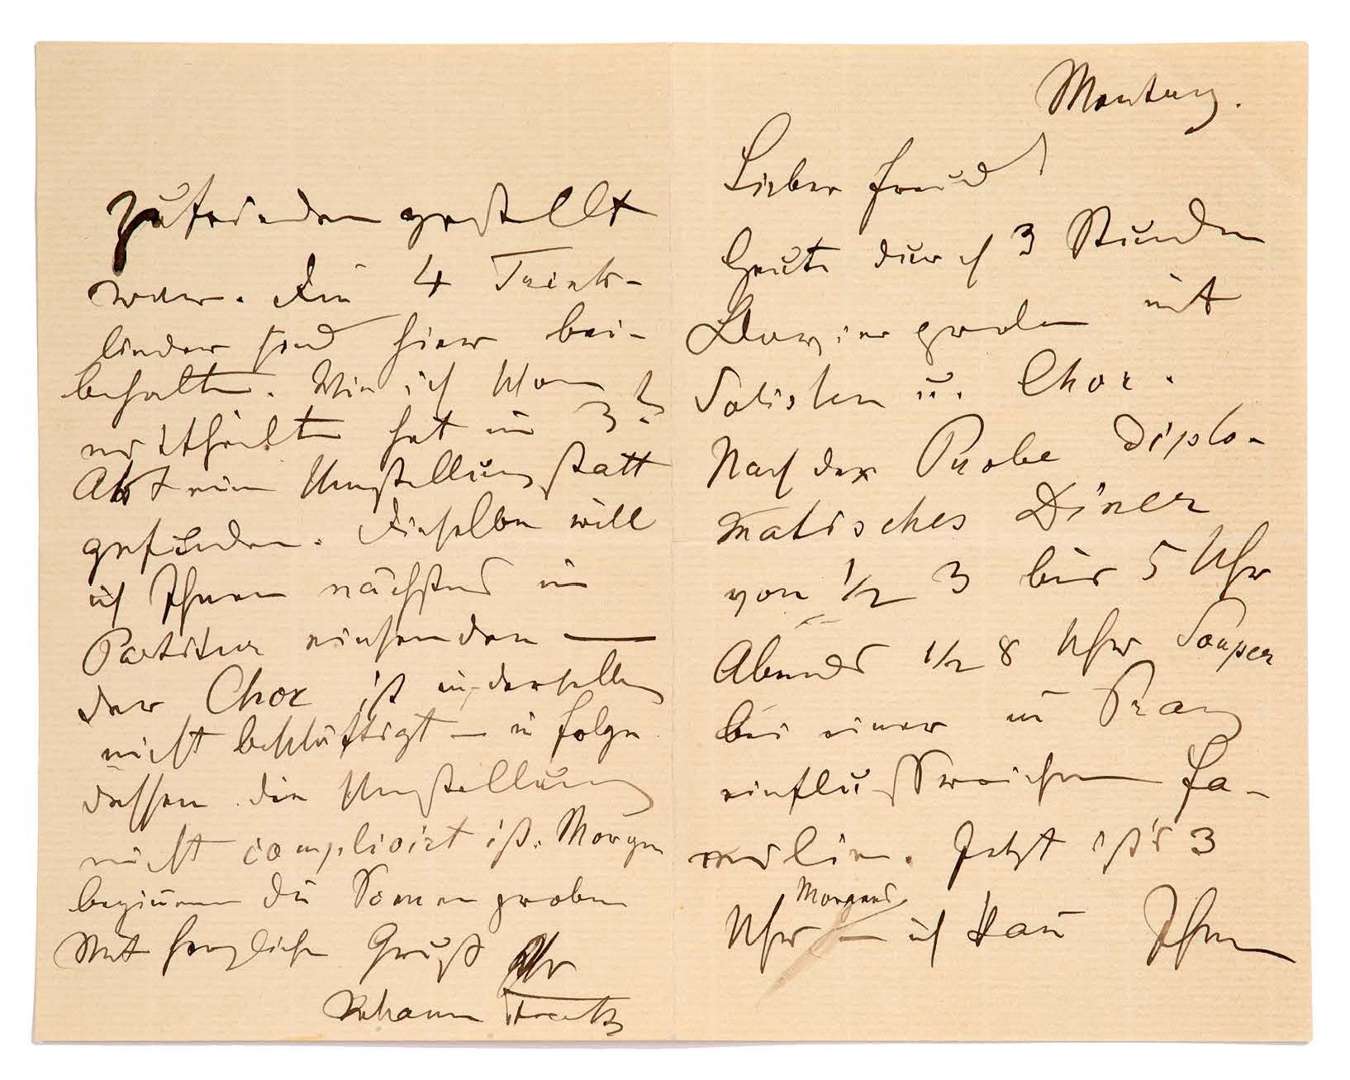 Montag.
Lieber Freund
Heute durch 3 Stunden
Clavierproben mit
Solisten u. Chor.
Nach der Probe diplo-
matisches Diner
von 1/2 3 bis 5 Uhr
Abends 1/2 8 Uhr Souper
bei einer in Prag
einflußreichen Fa-
milie. Jetzt ist's 3
Uhr Morgens – ich kann Ihnen
zufrieden gestellt
war. Die 4 Trink-
lieder sind hier bei-
behalten. Wie ich
mittheilte hat im 3t
Akt eine Umstellung statt
gefunden. Dieselbe will
ich Ihnen nächstens in
Partitur einsenden —
der Chor ist in derselben
nicht beschäftigt – in Folge
dessen die Umstellung
nicht complicirt ist. Morgen
beginnen die Scenenproben
Mit herzlichem Gruß Ihr
Johann Strauss